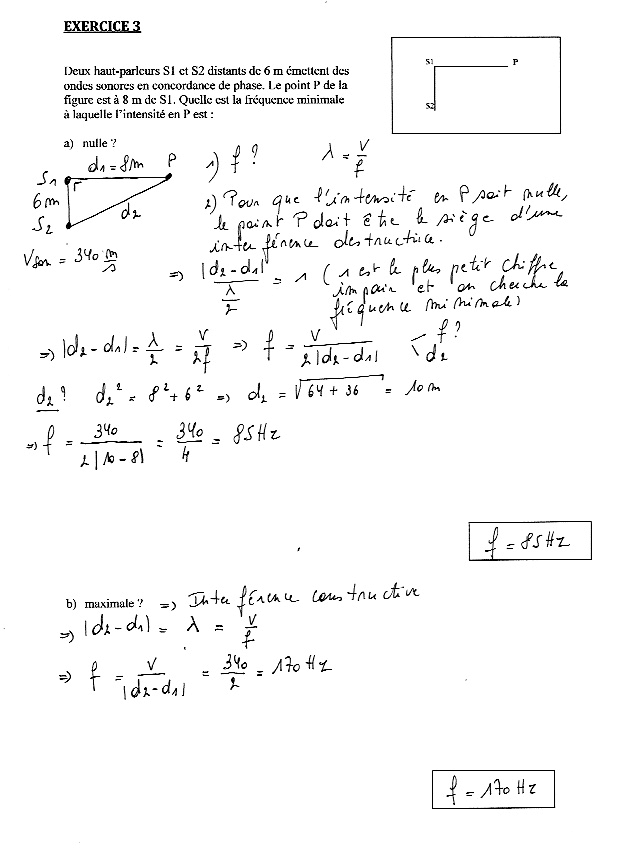 EXERCICE 3
Deux haut-parleurs S1 et S2 distants de 6 m émettent des
ondes sonores en concordance de phase. Le point P de la
figure est à 8 m de S1. Quelle est la fréquence minimale
à laquelle l'intensité en P est :
S1 P
S2
a) nulle ?
d1 = 8m P
S1
6m
S2 d2
Vson = 340 m/s
1) f ? λ = V/f
2) Pour que l'intensité en P soit nulle,
le point P doit être le siège d'une
interférence destructrice.
=> |d2-d1| / (λ/2) = 1 (1 est le plus petit chiffre
impair et on cherche la
fréquence minimale)
=> |d2-d1| = λ/2 = V/2f => f = V / 2|d2-d1| f ?
d2
d2 ? d2² = 8² + 6² => d2 = √(64 + 36) = 10m
=> f = 340 / 2|10-8| = 340/4 = 85Hz
f = 85Hz
b) maximale ? => Interférence constructive
=> |d2-d1| = λ = V/f
=> f = V / |d2-d1| = 340/2 = 170 Hz
f = 170 Hz